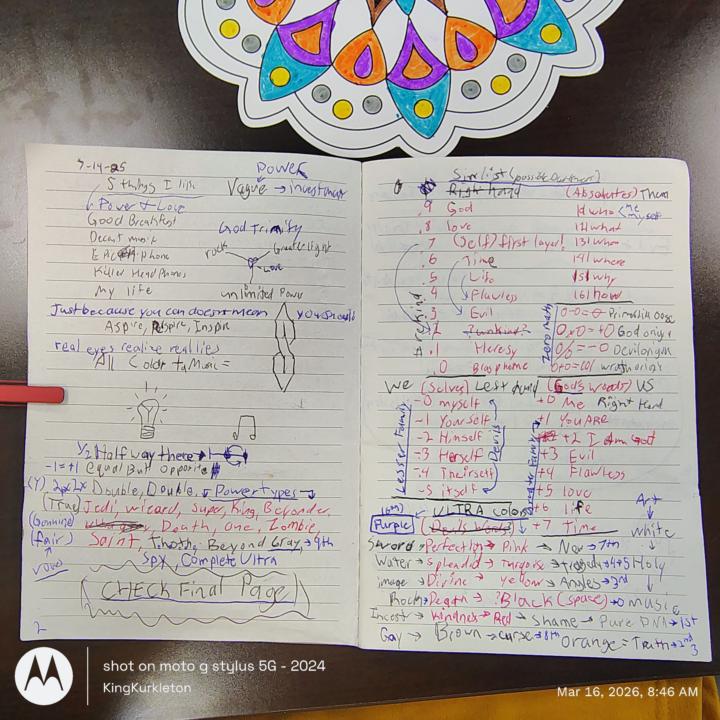 7-14-25
5 things I like
Power & Love
Good Breakfast
Decent music
Epic phone
Killer Head Phones
my life
Power
Vague → investment
God Trinity
rock
Greater light
Love
unlimited Power
Just because you can doesn't mean you should
Aspire, Inspire
real eyes realize real lies
All Color + Music =
1/2 Half way there
-1=+1 equal But opposite
(Y) 2x2x Double, Double, Power types
(True) Jedi, wizard, super, King, Beyonder,
(Genuine) Death, One, Zombie,
(fair) Saint, Timoth, Beyond Gray → 9th
vow
Spx, Complete Ultra
CHECK Final Page
2
Sin list (possible Darkness)
Right hand (Absolutes) Them
.9 God 1) who < me myself
.8 love 12) what
.7 (Self) first layer! 13) when
.6 Time 14) where
.5 Life 15) why
.4 Flawless 16) how
.3 Evil
.2
.1 Heresy
.0 Blasphome
Zero math
0-0=0 Primordial Ooze
0x0=+0 God origin
0/0=-0 Devil origin
0+0=
We (Solves) Left hand (Gods words) US
-0 myself +0 Me Right Hand
-1 Yourself +1 YOU ARE
-2 Himself +2 I Am God
-3 Herself +3 Evil
-4 Theirself +4 Flawless
-5 itself +5 love
+6 life
+7 Time
Lesser Family
Devils
Greater Family
ULTRA colors
(Devils Words)
Purple
Art
white
Holy
music
Sword → Perfection → Pink → New → 7th
Water → splendid → turqoise → tragedy → 4+5
image → Divine → Yellow → Angles → 3rd
Rock → Death → Black (space) → 0
Incest → Kindness → Red → Shame → Pure DNA → 1st
Gay → Brown → curse → 8th Orange = Truth → 2nd
3
shot on moto g stylus 5G - 2024
KingKurkleton
Mar 16, 2026, 8:46 AM